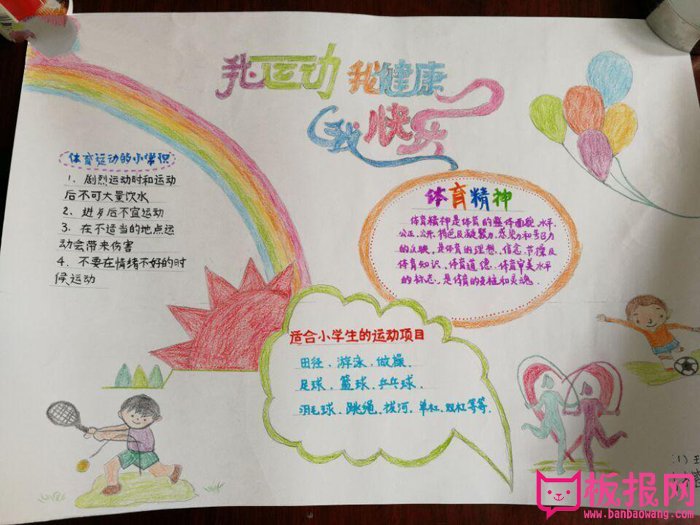 我运动 我健康
我快乐
体育运动的小常识
1、剧烈运动时和运动
后不可大量饮水
2、进歺后不宜运动
3、在不适当的地点运
动会带来伤害
4、不要在情绪不好的时
候运动
体育精神
体育精神是体育的整体面貌,水平,
公正,公开,特色及凝聚力,感染力和号召力
的反映,是体育的理想、信念、节操及
体育知识、体育道德、体育审美水平
的标志,是体育的支柱和灵魂.
适合小学生的运动项目
田径、游泳、做操、
足球、篮球、乒乓球、
羽毛球、跳绳、拔河、单杠、双杠等等.
板报网
www.banbaowang.com